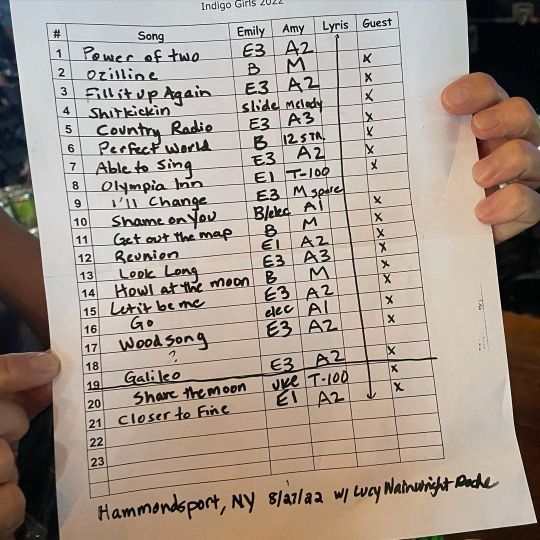 Indigo Girls 2022
# Song Emily Amy Lyris Guest
1 Power of two E3 A2
2 Ozilline B M x
3 Fill it up Again E3 A2 x
4 Shitkickin slide melody x
5 Country Radio E3 A3 x
6 Perfect World B 12 STR. x
7 Able to Sing E3 A2 x
8 Olympia Inn E1 T-100 x
9 I'll Change E3 M spare
10 Shame on You B/elec A1 x
11 Get out the map B M x
12 Reunion E1 A2 x
13 Look Long E3 A3 x
14 Howl at the moon B M x
15 Let it be me E3 A2 x
16 Go elec A1 x
17 Wood song E3 A2
18 ?
19 Galileo E3 A2 x
20 Share the moon uke T-100 x
21 Closer to Fine E1 A2 x
22
23
1
Hammondsport, NY 8/27/22 w/ Lucy Wainwright Roche